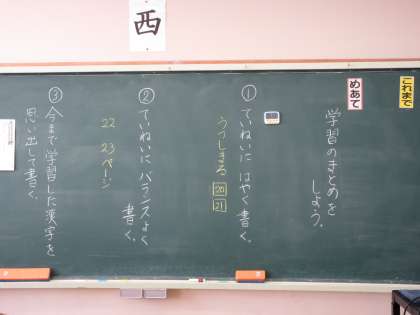 西
これまで
めあて
学習のまとめを
しよう。
① ていねいに はやく書く。
うつしまる 20
21
② ていねいに バランスよく
書く。
22 23ページ
③ 今まで学習した漢字を
思い出して書く。